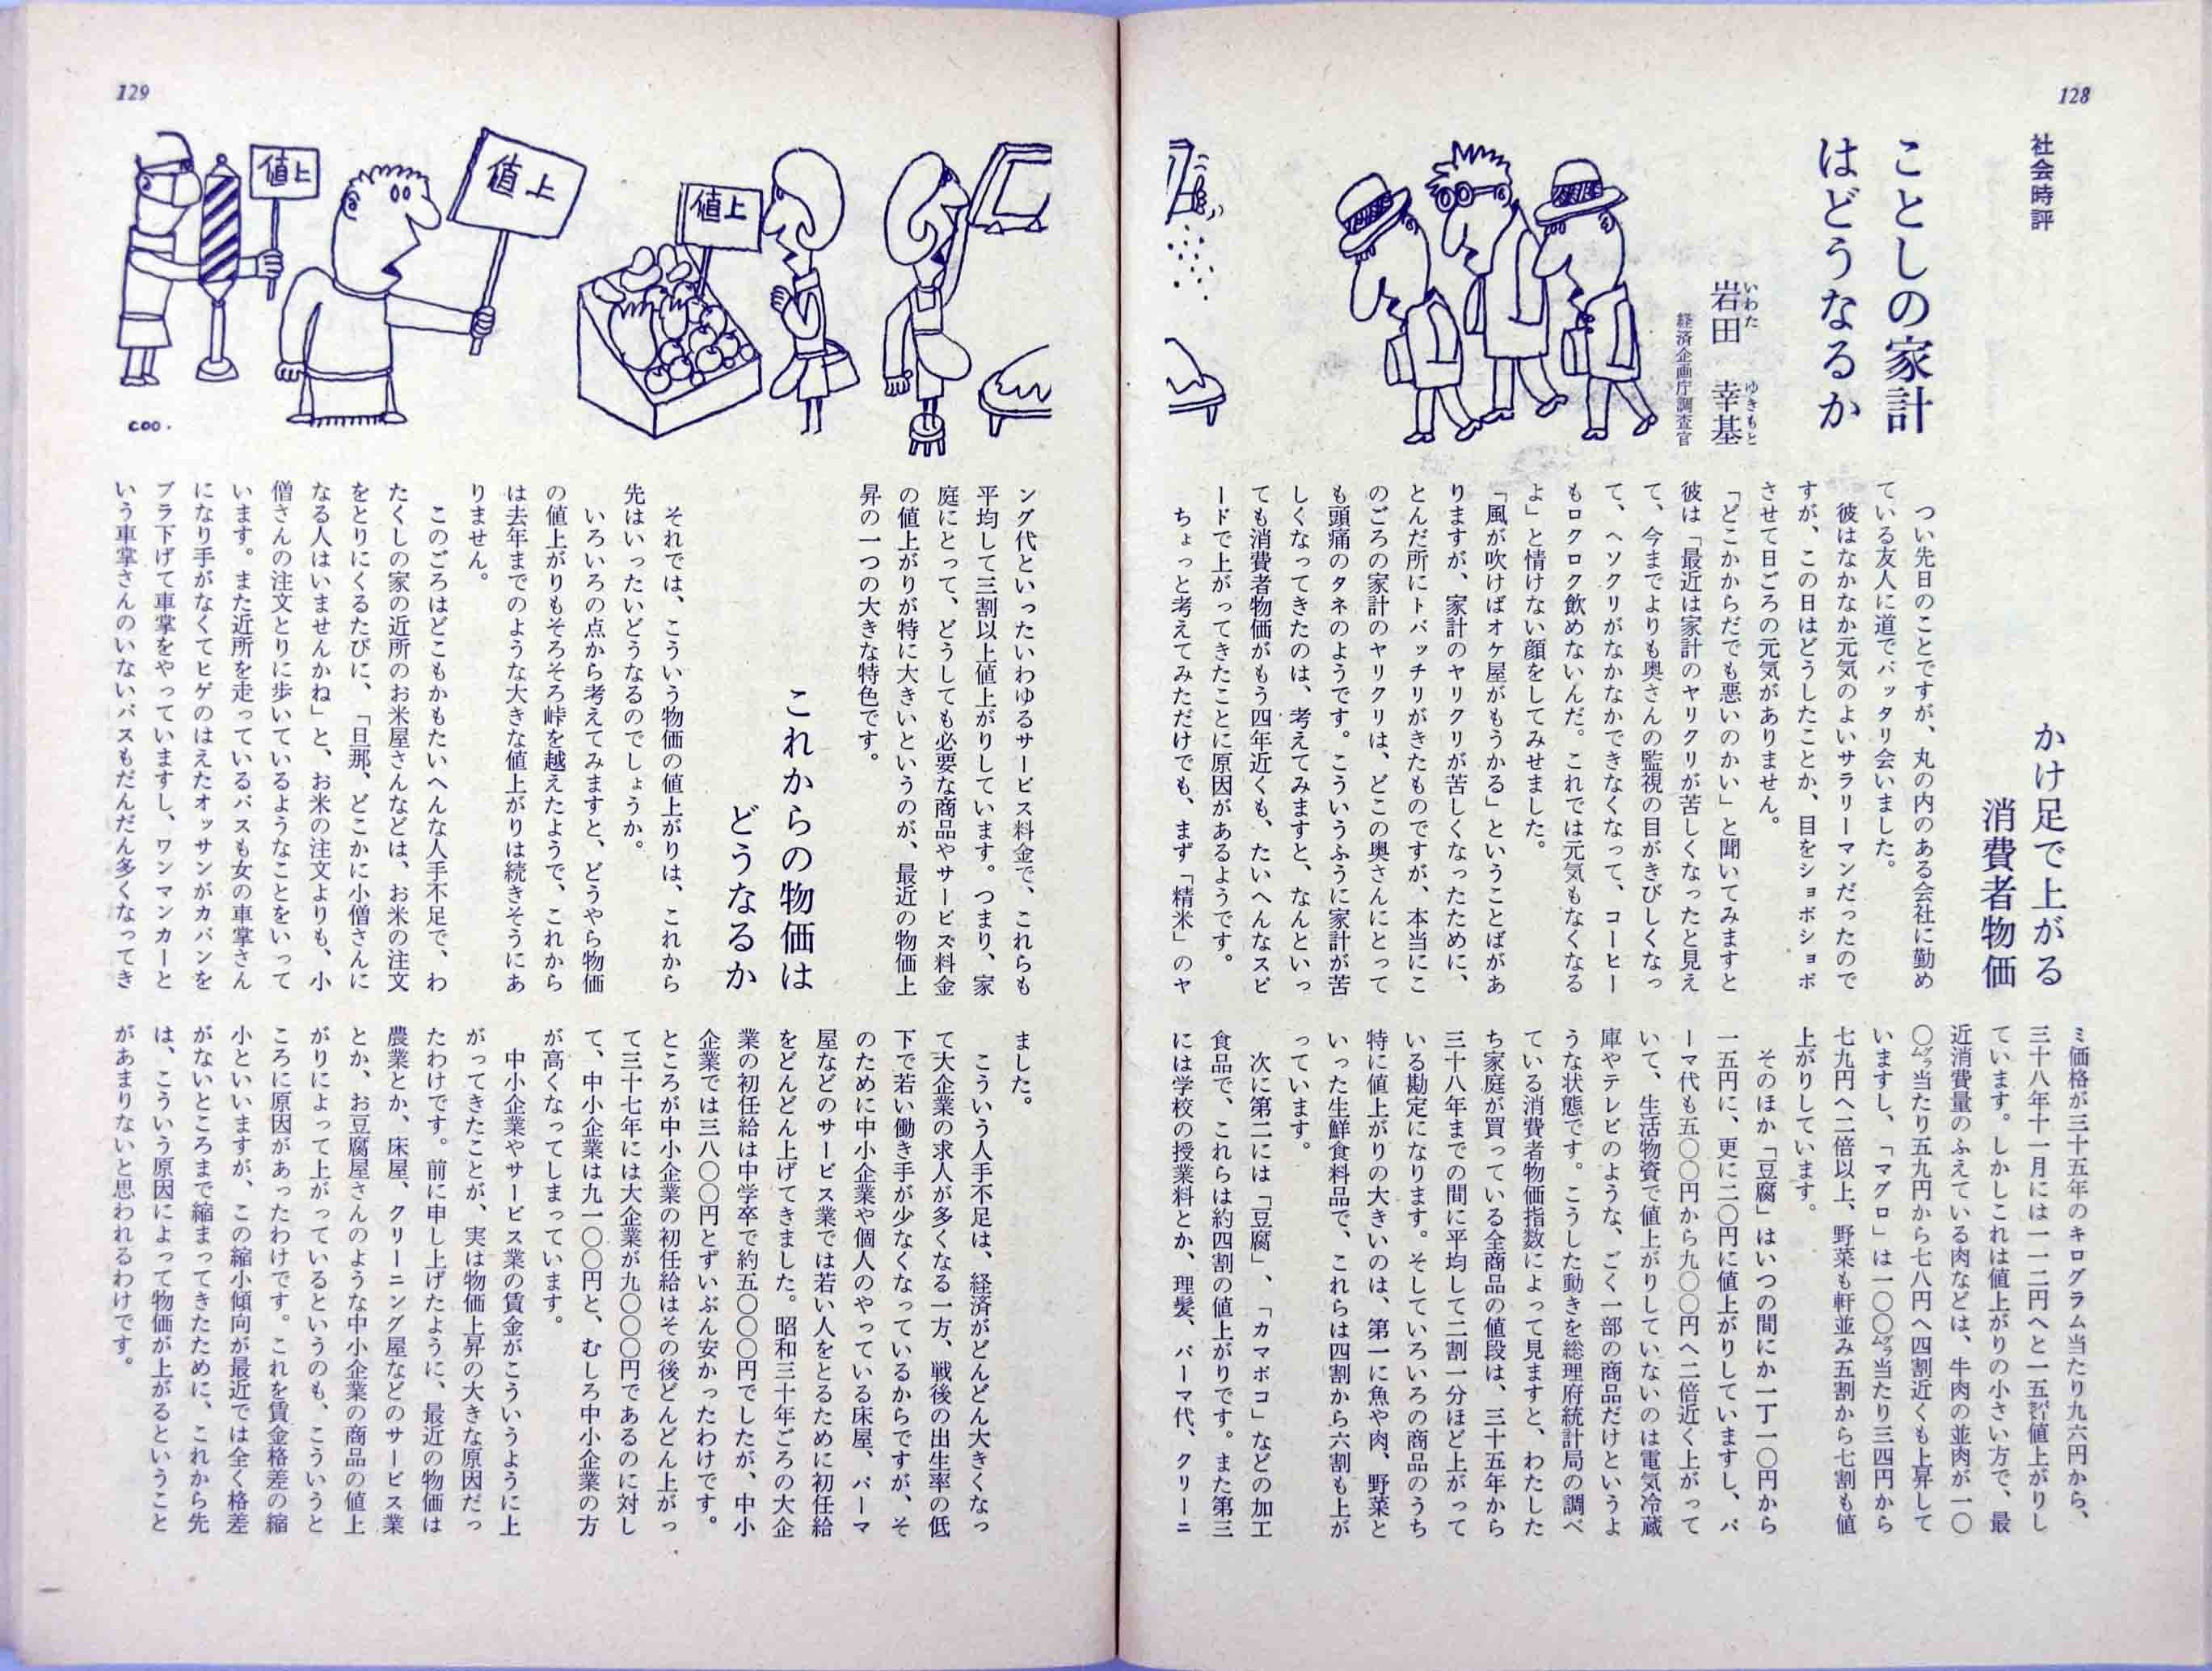 128
社会時評
ことしの家計
はどうなるか
岩田　幸基
いわた　ゆきもと
経済企画庁調査官
かけ足で上がる
消費者物価
つい先日のことですが、丸の内のある会社に勤め
ている友人に道でバッタリ会いました。
彼はなかなか元気のよいサラリーマンだったので
すが、この日はどうしたことか、目をショボショボ
させて日ごろの元気がありません。
「どこかからだでも悪いのかい」と聞いてみますと
彼は「最近は家計のヤリクリが苦しくなったと見え
て、今までよりも奥さんの監視の目がきびしくなっ
て、ヘソクリがなかなかできなくなって、コーヒー
もロクロク飲めないんだ。これでは元気もなくなる
よ」と情けない顔をしてみせました。
「風が吹けばオケ屋がもうかる」ということばがあ
りますが、家計のヤリクリが苦しくなったために、
とんだ所にトバッチリがきたものですが、本当にこ
のごろの家計のヤリクリは、どこの奥さんにとって
も頭痛のタネのようです。こういうふうに家計が苦
しくなってきたのは、考えてみますと、なんといっ
ても消費者物価がもう四年近くも、たいへんなスピ
ードで上がってきたことに原因があるようです。
ちょっと考えてみただけでも、まず「精米」のヤ
ミ価格が三十五年のキログラム当たり九六円から、
三十八年十一月には一一二円へと一五㌫値上がりし
ています。しかしこれは値上がりの小さい方で、最
近消費量のふえている肉などは、牛肉の並肉が一〇
〇㌘当たり五九円から七八円へ四割近くも上昇して
いますし、「マグロ」は一〇〇㌘当たり三四円から
七九円へ二倍以上、野菜も軒並み五割から七割も値
上がりしています。
そのほか「豆腐」はいつの間にか一丁一〇円から
一五円に、更に二〇円に値上がりしていますし、パ
ーマ代も五〇〇円から九〇〇円へ二倍近く上がって
いて、生活物資で値上がりしていないのは電気冷蔵
庫やテレビのような、ごく一部の商品だけというよ
うな状態です。こうした動きを総理府統計局の調べ
ている消費者物価指数によって見ますと、わたした
ち家庭が買っている全商品の値段は、三十五年から
三十八年までの間に平均して二割一分ほど上がって
いる勘定になります。そしていろいろの商品のうち
特に値上がりの大きいのは、第一に魚や肉、野菜と
いった生鮮食料品で、これらは四割から六割も上が
っています。
次に第二には「豆腐」、「カマボコ」などの加工
食品で、これらは約四割の値上がりです。また第三
には学校の授業料とか、理髪、パーマ代、クリーニ
129
値上
値上
値上
COO.
ング代といったいわゆるサービス料金で、これらも
平均して三割以上値上がりしています。つまり、家
庭にとって、どうしても必要な商品やサービス料金
の値上がりが特に大きいというのが、最近の物価上
昇の一つの大きな特色です。
これからの物価は
どうなるか
それでは、こういう物価の値上がりは、これから
先はいったいどうなるのでしょうか。
いろいろの点から考えてみますと、どうやら物価
の値上がりもそろそろ峠を越えたようで、これから
は去年までのような大きな値上がりは続きそうにあ
りません。
このごろはどこもかもたいへんな人手不足で、わ
たくしの家の近所のお米屋さんなどは、お米の注文
をとりにくるたびに、「旦那、どこかに小僧さんに
なる人はいませんかね」と、お米の注文よりも、小
僧さんの注文とりに歩いているようなことをいって
います。また近所を走っているバスも女の車掌さん
になり手がなくてヒゲのはえたオッサンがカバンを
ブラ下げて車掌をやっていますし、ワンマンカーと
いう車掌さんのいないバスもだんだん多くなってき
ました。
こういう人手不足は、経済がどんどん大きくなっ
て大企業の求人が多くなる一方、戦後の出生率の低
下で若い働き手が少なくなっているからですが、そ
のために中小企業や個人のやっている床屋、パーマ
屋などのサービス業では若い人をとるために初任給
をどんどん上げてきました。昭和三十年ごろの大企
業の初任給は中学卒で約五〇〇〇円でしたが、中小
企業では三八〇〇円とずいぶん安かったわけです。
ところが中小企業の初任給はその後どんどん上がっ
て三十七年には大企業が九〇〇〇円であるのに対し
て、中小企業は九一〇〇円と、むしろ中小企業の方
が高くなってしまっています。
中小企業やサービス業の賃金がこういうように上
がってきたことが、実は物価上昇の大きな原因だっ
たわけです。前に申し上げたように、最近の物価は
農業とか、床屋、クリーニング屋などのサービス業
とか、お豆腐屋さんのような中小企業の商品の値上
がりによって上がっているというのも、こういうと
ころに原因があったわけです。これを賃金格差の縮
小といいますが、この縮小傾向が最近では全く格差
がないところまで縮まってきたために、これから先
は、こういう原因によって物価が上がるということ
があまりないと思われるわけです。